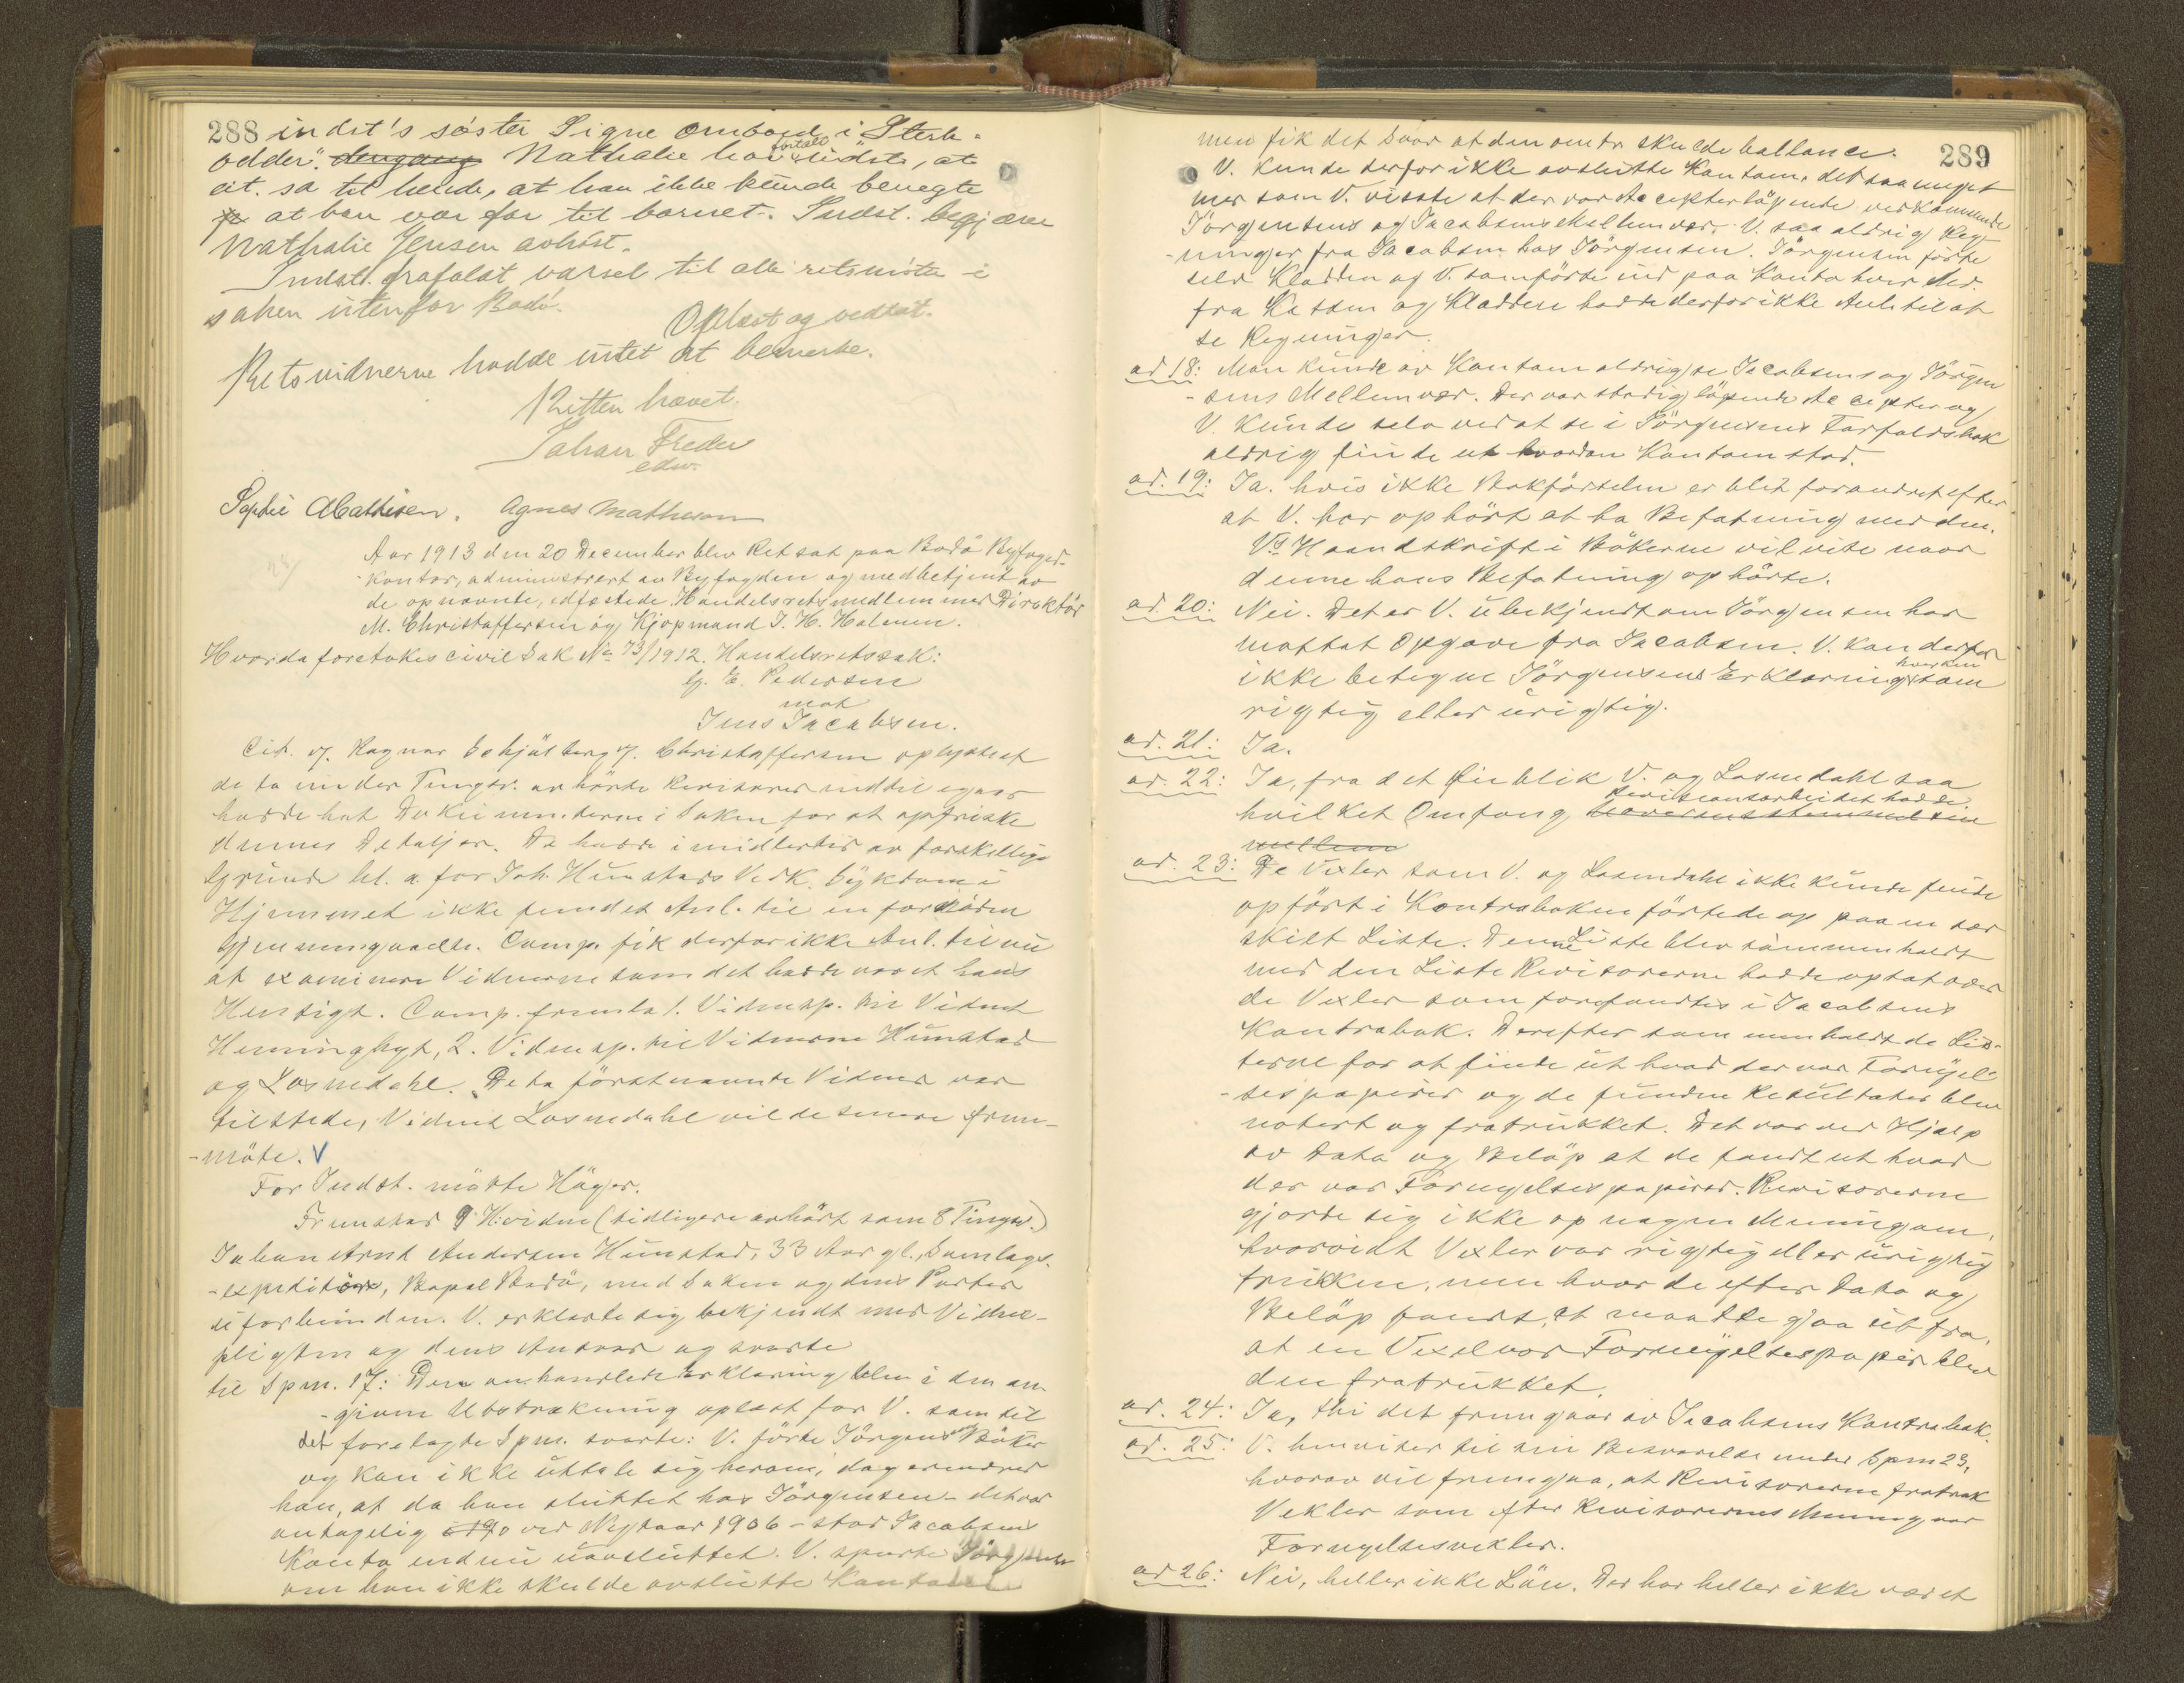 288 indst's søster Signe ombord i Sterk-
odder". dengang Nathalie har fortalt indst, at
cit. sa til hende, at han ikke kunde benegte
at han var far til barnet. Indst. begjærer
Nathalie Jensen avhørt.
Indst. frafaldt varsel til alle retsmøter i
saken utenfor Bodø.
Oplæst og vedtat.
Retsvidnerne hadde intet at bemerke.
Retten hævet.
Johan Freder
edsv.
Sophie Mathisen. Agnes Mathisen
Aar 1913 den 20 December blev Ret sat paa Bodö Byfoged-
kontor, administrert av Byfogden og medbetjent av
de opnævnte, edfæstede Handelsretsmedlemmer Direktör
M. Christoffersen og Kjøpmand J. H. Holmen.
Hvorda foretokes civil Sak No 73/1912. Handelsretssak:
E. Pedersen
mot
Jens Jacobsen.
Cit. v. Ragnar Schjölberg v. Christoffersen oplystes at
de to under Tingsv. avhörte Revisorer indtil igaar
hadde hat Dokumenterne i Saken for at opfriske
dennes Detaljer. De hadde imidlertid av forskellige
Grunde bl. a. for Joh. Hunstads Vedk. Sykdom i
Hjemmet ikke fundet Anl. til en fornöden
Gjennemgaaelse. Comp. fik derfor ikke Anl. til nu
at examinere Vidnerne som det hadde været hans
Hensigt. Comp. fremla 1. Vidnesp. til Vidnet
Henningbyt, 2. Vidnesp. til Vidnerne Hunstad
og Losnedahl. De to förstnævnte Vidner var
tilstede, Vidnet Losnedahl vilde senere frem-
-möte. V
For Indst. mötte Häger.
Fremstod 9 H.vidne (tidligere avhört som 8 Tingsv.)
Johan Arnt Andersen Hunstad, 33 Aar gl., Samlags-
-expeditör, Bopæl Bodö, med Saken og dens Parter
uforbunden. V. erklærte sig bekjendt med Vidne-
pligten og dens Ansvar og svarte
til Spm. 17: Den omhandlede Erklæring blev i den om-
-givne Utstrækning oplæst for V. som til
det forelagte Spm. svarte: V. förte Jörgensens Böker
og kan ikke uttale sig herom, dog erindrer
han, at da han sluttet hos Jörgensen - det var
antagelig i 190 ved Nytaar 1906 - stod Jacobsens
Konto endnu uavsluttet. V. spurte Jörgensen
om han ikke skulde avslutte Kontoen
289
men fik det Svar at den omtr. skulde ballance.
V. kunde derfor ikke avslutte Kontoen, det saa meget
mer som V. visste at der var Accepter löpende vedkommende
Jörgensens og Jacobsens Mellemvær. V. saa aldrig Reg-
-ninger fra Jacobsen hos Jörgensen. Jörgensen förte
selv Kladden og V. samförte ind paa Konto hver Mdr.
fra Kassen og Kladden hadde derfor ikke Anl. til at
se Regninger.
ad 18: Man kunde av Kontoen aldrig se Jacobsens og Jörgen
-sens Mellemvær. Der var stadig löpende Accepter og
V. kunde selv ved at se i Jörgensens Forfaldsbok
aldrig finde ut hvordan Kontoen stod.
ad. 19: Ja. hvis ikke Bokförselen er blit forandret efter
at V. har ophört at ha Befatning med den.
Vs Haandskrift i Bökerne vil vise naar
denne hans Befatning ophörte.
ad. 20: Nei. Det er V. ubekjendt om Jörgensen har
mottat Opgave fra Jacobsen. V. kan derfor
ikke betegne Jörgensens Erklæring hverken som
rigtig eller urigtig.
ad. 21: Ja.
ad. 22: Ja, fra det Öieblik V. og Losnedahl saa
hvilket Omfang Revisionsarbeidet hadde.
mellem
ad. 23: De Vexler som V. og Losnedahl ikke kunde finde
opfört i Kontraboken förtede op paa en sær
skilt Liste. Denne Liste blev sammenholdt
med den Liste Revisorerne hadde optat over
de Vexler som forefandtes i Jacobsens
Kontrabok. Derefter sammenholdt de Lis-
terne for at finde ut hvad der var Fornyel-
-sespapirer og de fundne Resultater blev
notert og fratrukket. Det var ved Hjælp
av Dato og Belöp at de fandt ut hvad
der var Fornyelsespapirer. Revisorerne
gjorde sig ikke op nogen Mening om,
hvorvidt Vexler var rigtig eller urigtig
trukken, men hvor de efter Dato og
Belöp fandt, at maatte gaa ut fra,
at en Vexel var Fornyelsespapir blev
den fratrukket.
ad. 24: Ja, thi det fremgaar av Jacobsens Kontrabok.
ad. 25: V. henviser til sin Besvarelse under Spm 23,
hvorav vil fremgaa, at Revisorerne fratrak
Vekler som efter Revisorernes Mening var
Fornyelsesvekler.
ad 26: Nei, heller ikke Lön. Der har heller ikke været